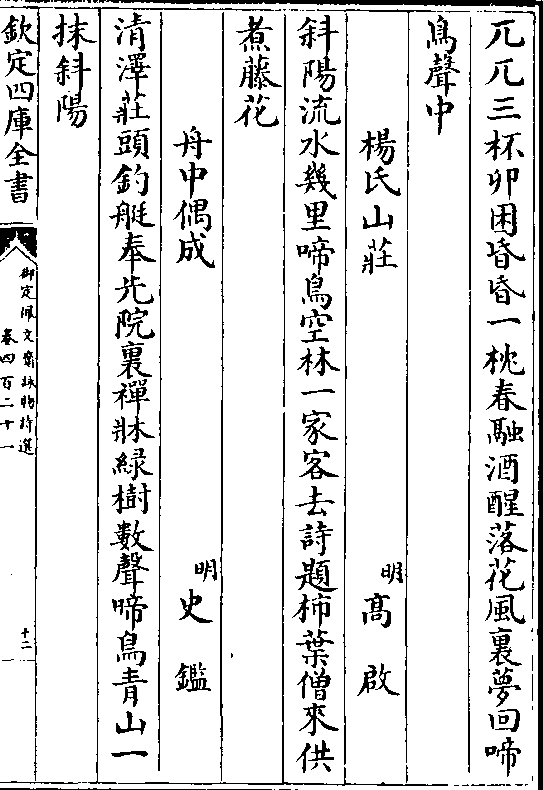 兀兀三杯卯困昏昏一枕春融酒醒落花風裏夢回啼
鳥聲中
楊氏山莊
明 高啟
斜陽流水幾里啼鳥空林一家客去詩題柿葉僧來供
煮藤花
舟中偶成
明 史鑑
清澤莊頭釣艇奉先院裏禪牀綠樹數聲啼鳥青山一
抹斜陽
欽定四庫全書
御定佩文齋詠物詩選
卷四百二十一
十二